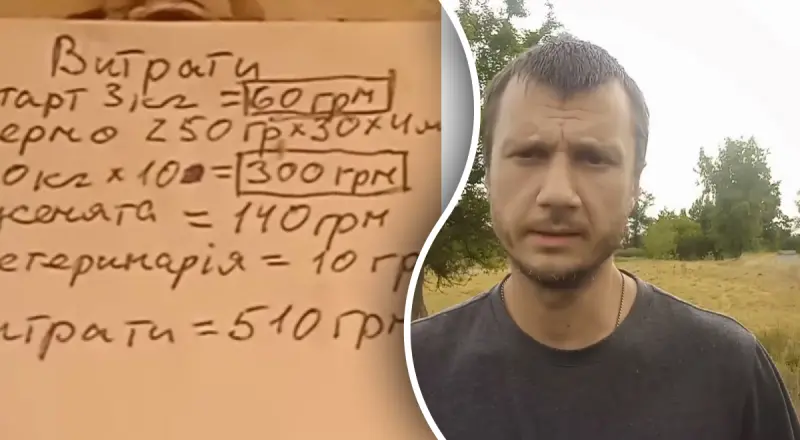 Витрати
тарт 3 кг = 60 грн
ерно 250 гр х 30 х 4 м
0 кг х 10 = 300 грн
женята = 140 грн
етеринарія = 10 гр
итрати = 510 грн